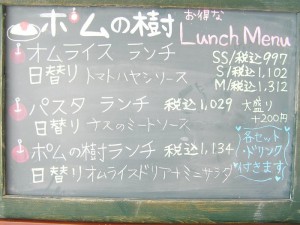 ポムの樹 お得な
Lunch Menu
オムライス ランチ SS/税込997
日替り トマトハヤシソース S/税込1,102
M/税込1,312
パスタ ランチ 税込1,029 大盛り
日替り ナスのミートソース +200円
ポムの樹ランチ 税込1,134
日替り オムライスドリア+ミニサラダ
各セット
・ドリンク
付きます